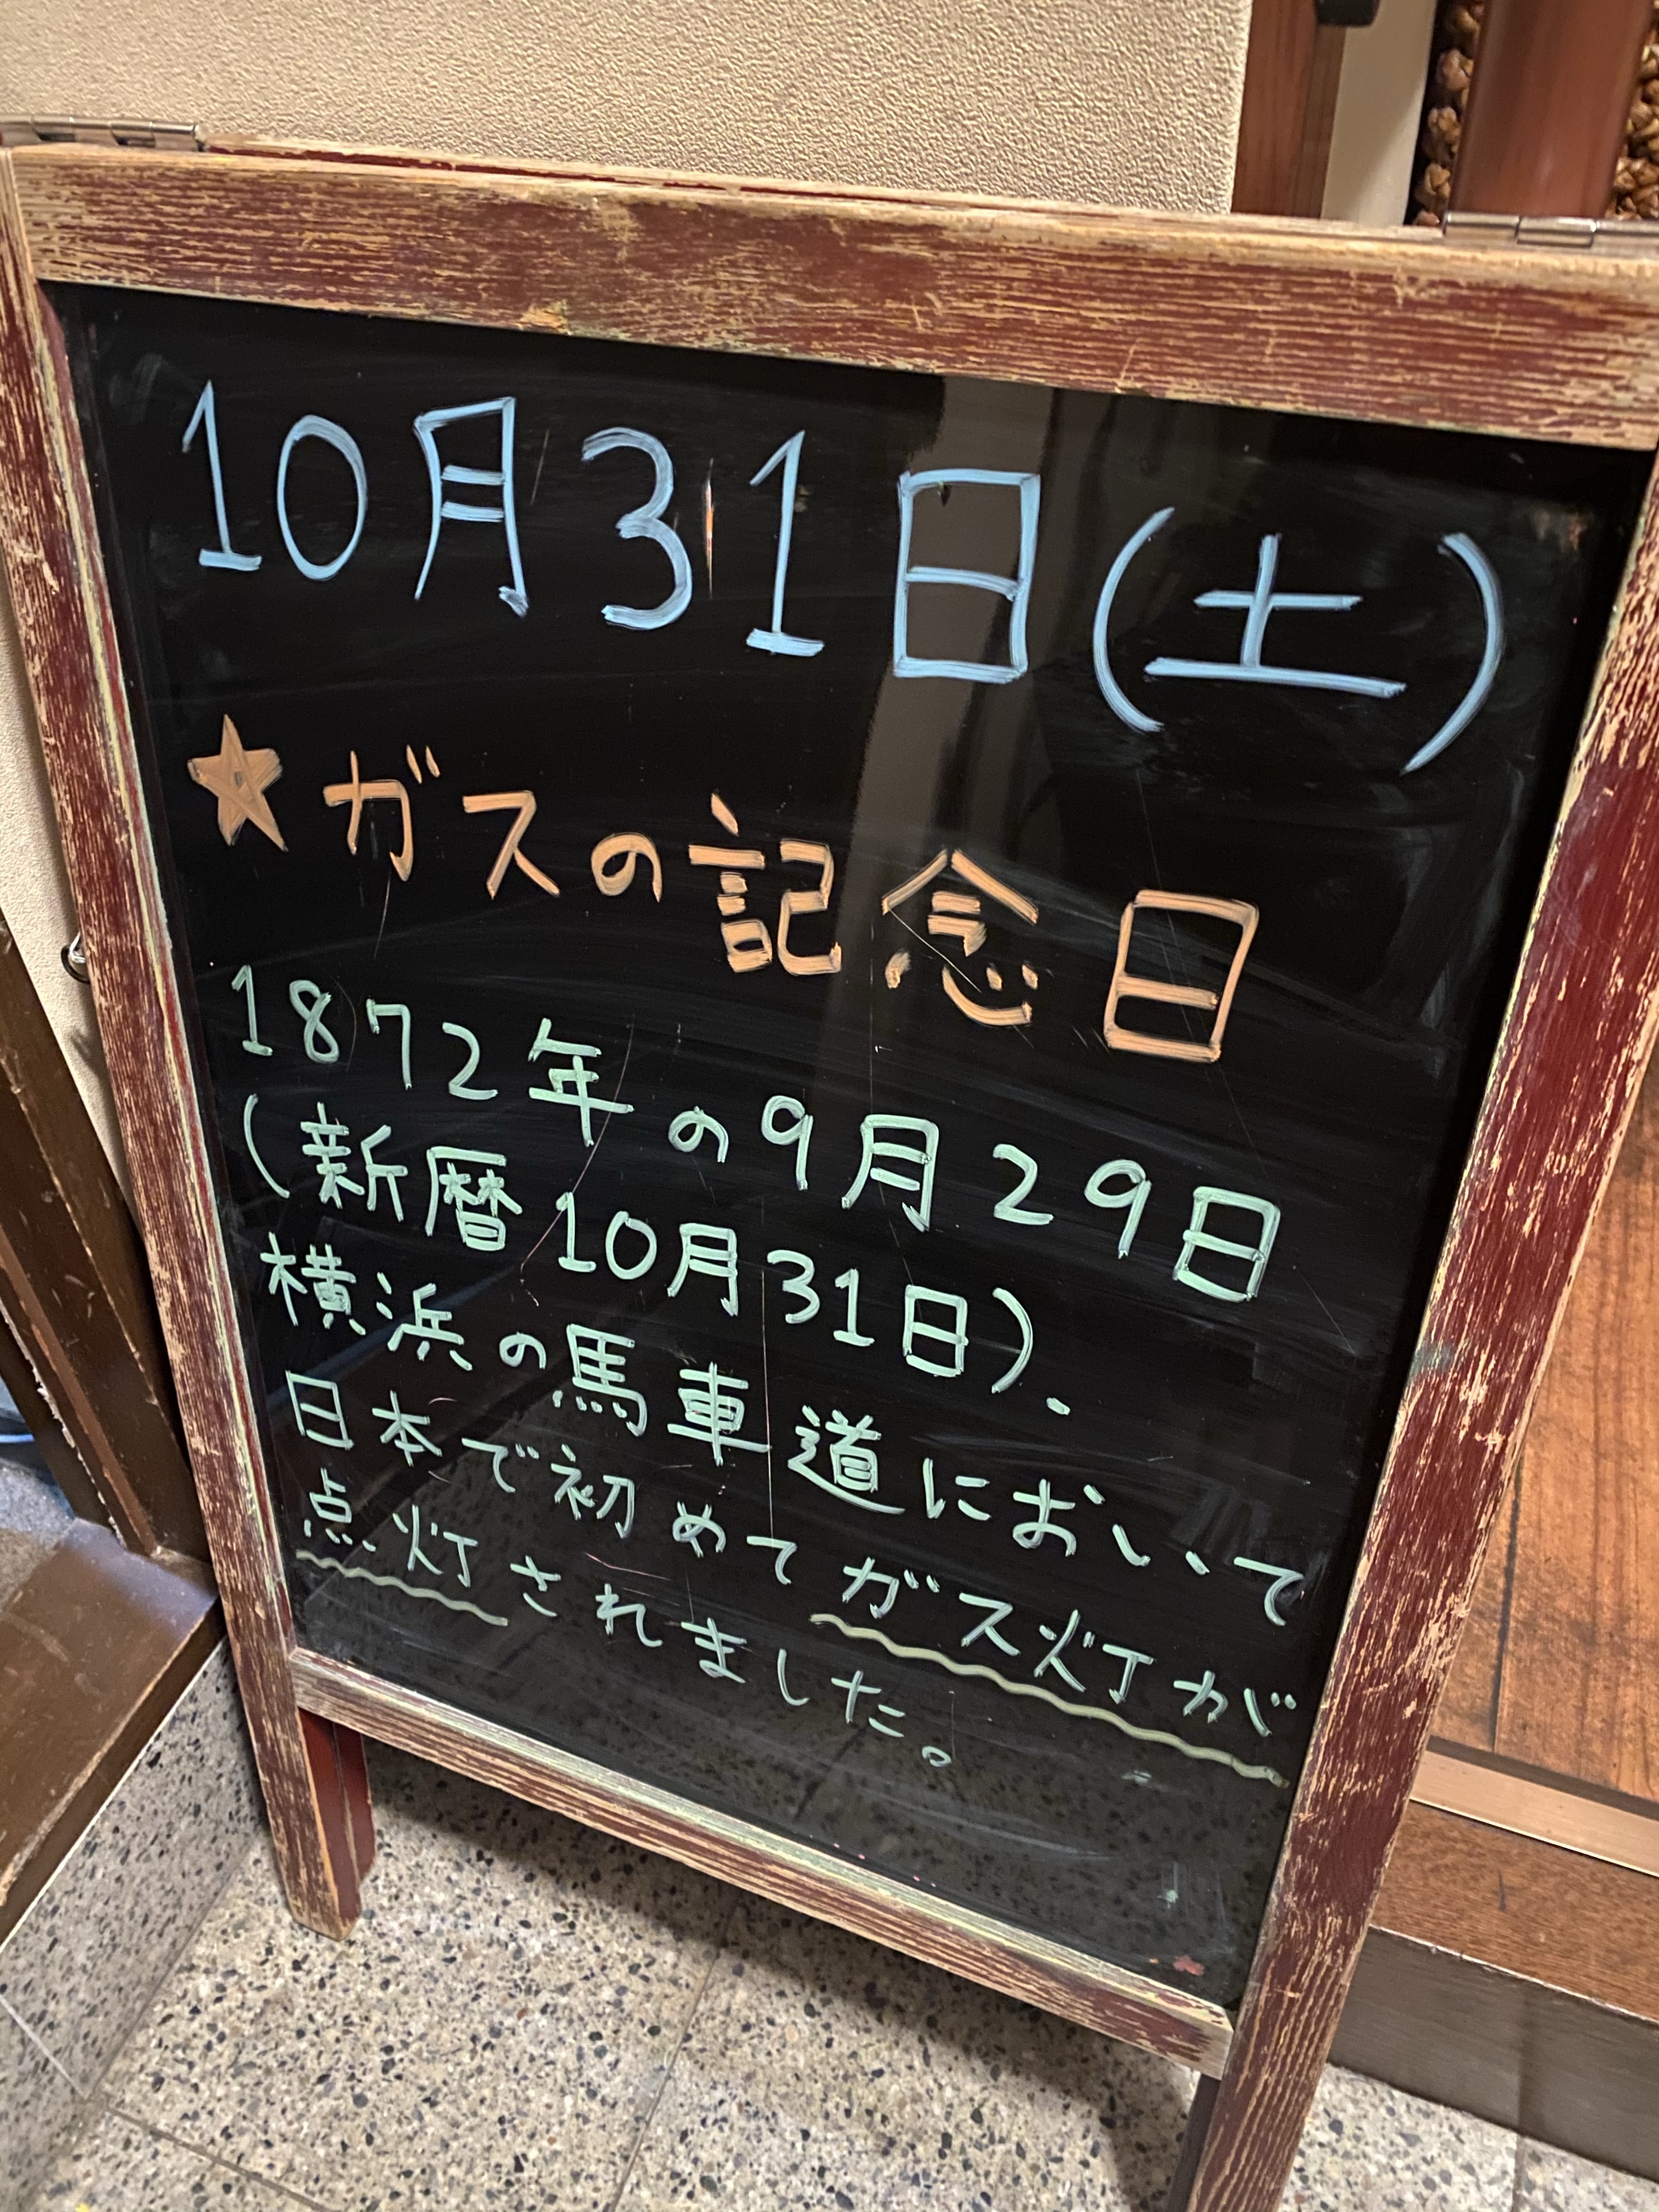 10月31日(土)
★ガスの記念日
1872年の9月29日
(新暦10月31日)、
横浜の馬車道において
日本で初めてガス灯が
点灯されました。